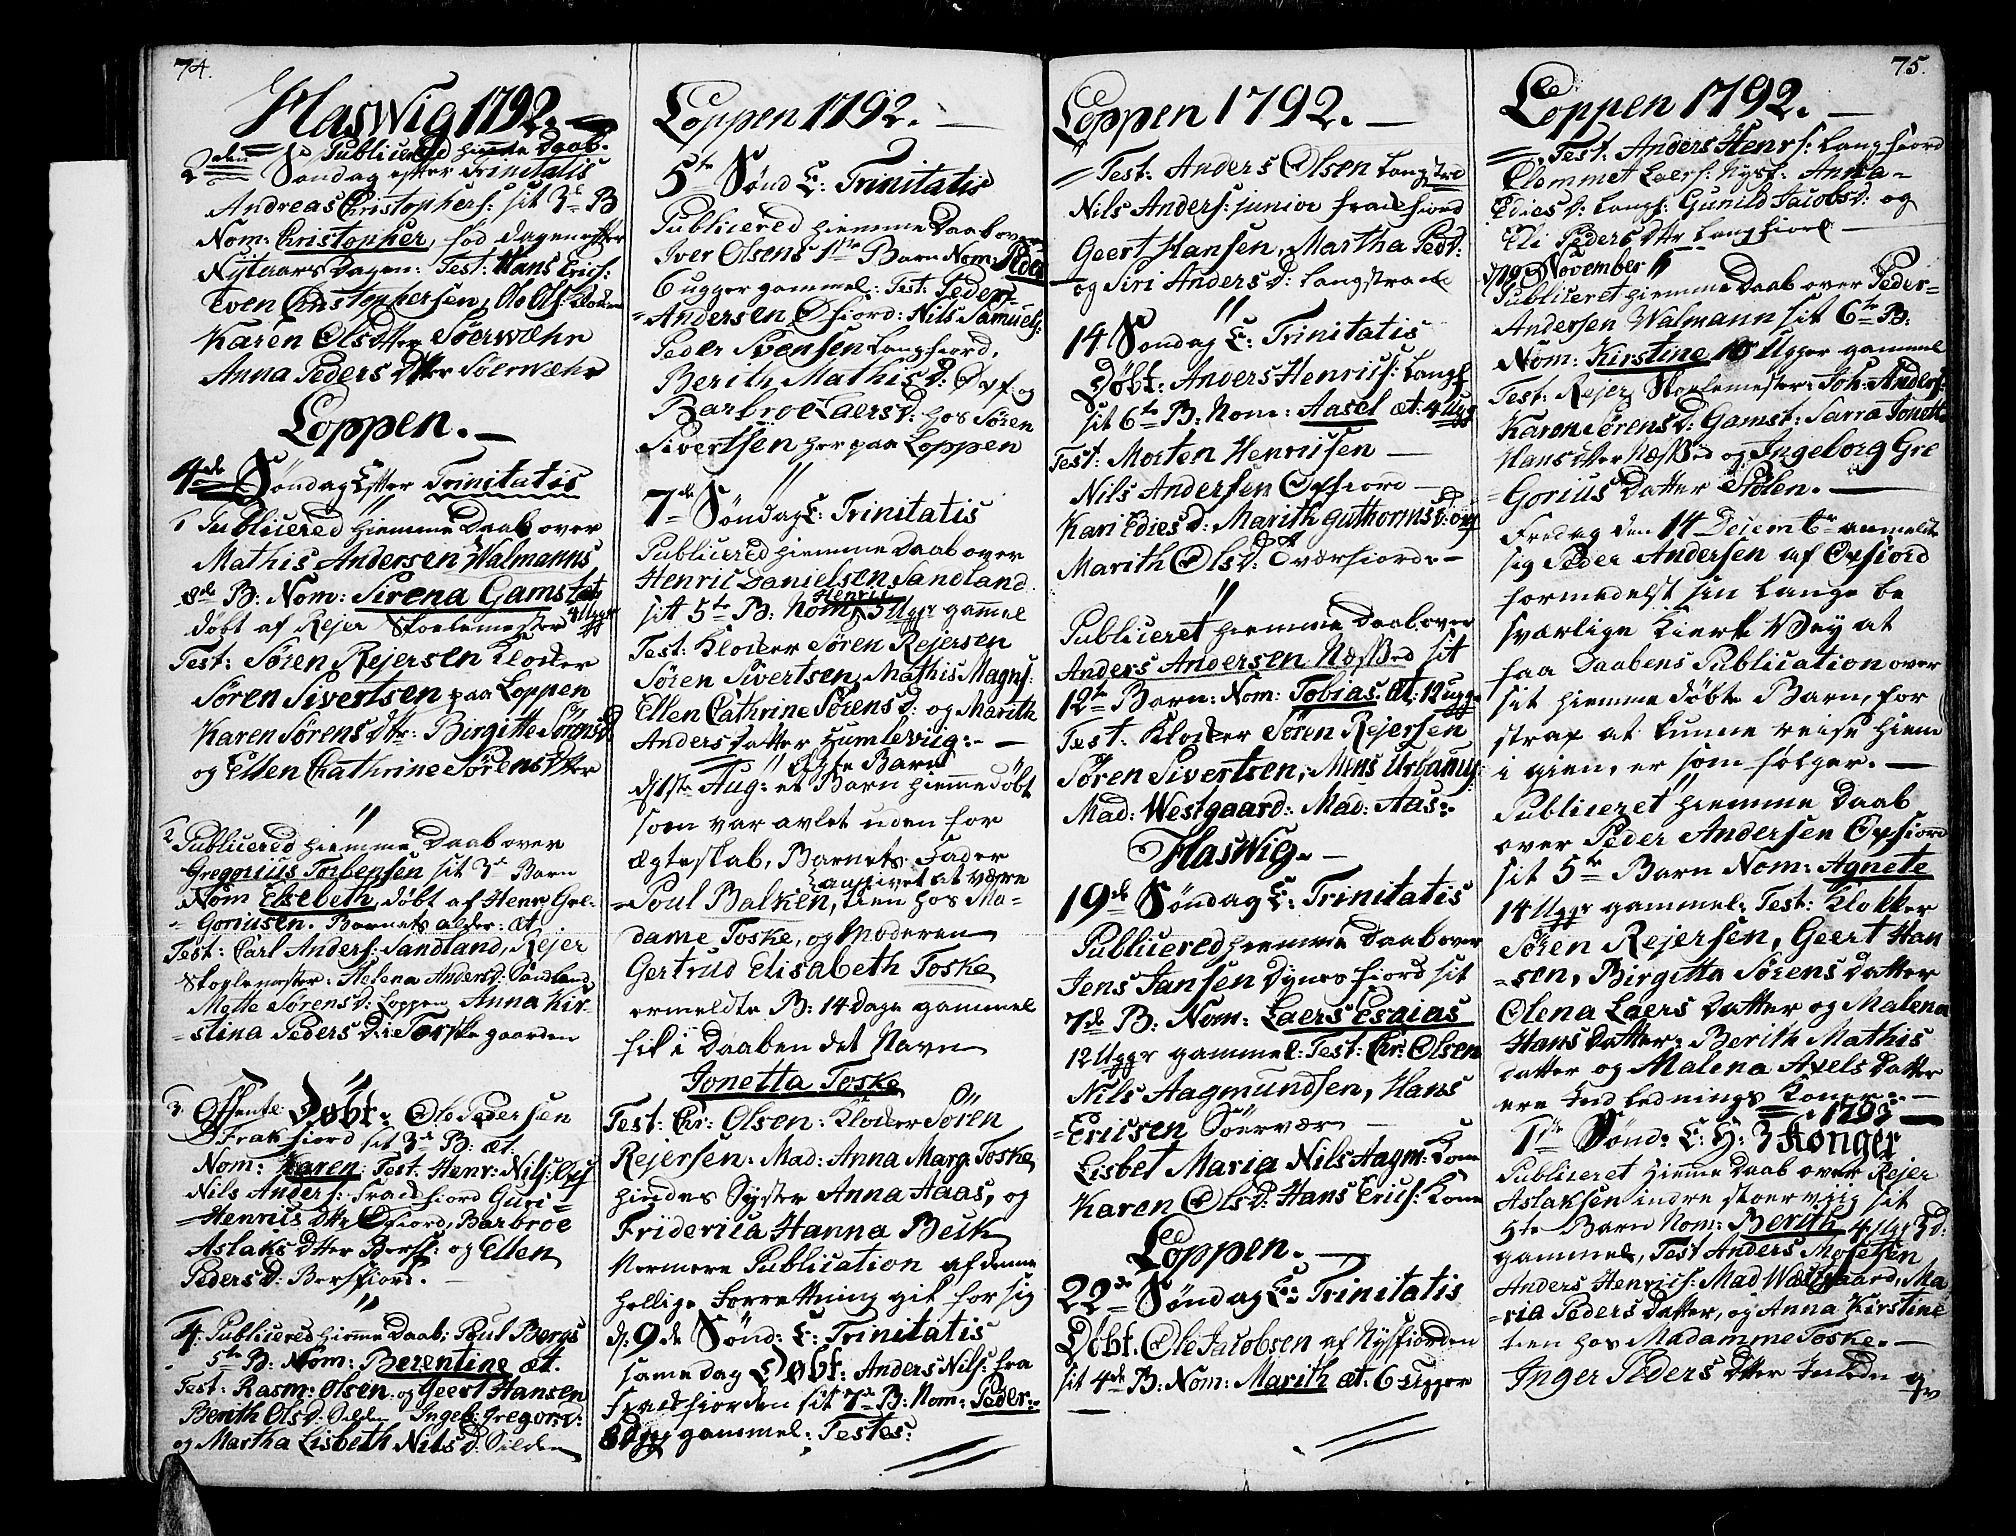 74.
Haswig 1792. —
Publicered hiemme Daab.
2den Søndag efter Trinitatis
Andreas Christophers: sit 3de B
Nom: Christopher, fød dagen efter
Nytaars Dagen: Test: Hans Erics:
Even Christophersen, Ole Ols:
Karen Olsdtter Söerwæhr
Anna Peders Dtter Söerwæhr
Loppen. —
4de Søndag Efter Trinitatis
1 Publicered hiemme Daab over
Mathis Andersen Walmanns
B: Nom: Sirena Gamst
døbt af Rejer Skoelemester 4 Ugger
Test: Søren Rejersen Klocker
Søren Sivertsen paa Loppen
Karen Sørens dtr: Birgitte Sörens D
og Ellen Chathrine Sørens Dtter
"
2 Publicered hiemme Daab over
Gregorius Torbensen sit 3de Barn
Nom Elsebeth, døbt af Henr: Gre-
- Goriusen. Barnets alder: æt
Test: Carl Anders: Sandland, Rejer
Skoelemester: Helena Anders D: Sandland
Mette Sørens D: Loppen, Anna Kir-
- stina Peders D: i Torskegaarden
"
3. Offentl: Døbt: Ole Pedersen
Frakfiord sit 3de B: æt.
Nom: Karen Test: Henr: Nils:
Nils Anders: Frakfiord Guri-
- Henrics dtr Øfiord, Barbroe
Aslaks dtter Bersf: og Ellen
Peders D: Bersfiord. —
"
4. Publicered hiemme Daab: Poul Bergs
5te B: Nom: Berentine æt.
Test: Rasm: Olsen og Geert Hansen
Berith Ols D: Silden Ingeb: Gregors D:
og Martha Lisbeth Nils D: Silden
Loppen 1792. —
5te Sønd E: Trinitatis
Publicered hiemme Daab over
Iver Olsens 1ste Barn Nom: Peder
6 ugger gammel: Test: Peder
- Andersen Øfiord: Nils Samuels:
Peder Svensen Langfiord,
Berith Mathis D: og
Barbroe Laers D: hos Søren
Sivertsen her paa Loppen
"
7de Søndag E: Trinitatis
Publicered hiemme Daab over
Henric Danielsen Sandland
sit 5te B: Nom: Henric 5 Ugger gammel
Test: Klocker Søren Rejersen
Søren Sivertsen, Mathis Magns:
Ellen Cathrine Sørens D: og Marith
Anders datter Humlevig: —
" Ægte Barn
d: 1ste Aug: et Barn hiemmedøbt
som var avlet uden for
ægteskab, Barnets Fader
angivet at være
- Poul Balken, tien hos Ma-
dame Toske, og Moderen
Gertrud Elisabeth Toske
ermeldte B: 14 Dage gammel
fik i Daaben det Navn
Jonetta Toske
Test: Chr: Olsen: Klocker Søren
Rejersen: Mad: Anna Marg: Toske
hindes Syster Anna Aas, og
Friderica Hanna Beck
Nermere Publication af denne
hellige Forrettning gik for sig
d: 9de Sønd: E: Trinitatis
samedag Døbt: Anders Nils: fra
Frakfiorden sit 7de B: Nom: Peder:
8 Dage gammel: Testes:
Loppen 1792. —
- Test: Anders Olsen Langstrand
Nils Anders: junior Frakfiord
Geert Hansen, Martha Peds D:
og Siri Anders D: Langstrand
"
14 Søndag E: Trinitatis
Døbt: Anders Henrics: Langf.
sit 6te B: Nom: Aasel æt: 4 Ugg
Test: Morten Henricsen —
Nils Andersen Øxfiord —
Kari Edies D: Marith Guthorms D: og
Marith Ols D: Tværfiord: —
"
Publiceret hiemme Daab over
Anders Andersen Næssed sit
12te Barn: Nom: Tobias æt: 12 ugge
Test: Klocker Søren Rejersen
Søren Sivertsen, Mons Urbanus:
Mad: Westgaard: Mad: Aas:
Haswig. —
19de Søndag E: Trinitatis
Publicered hiemme Daab over
Jens Jansen Dynesfiord sit
7de B: Nom: Laers Esaias
12 Ugger gammel: Test: Chr: Olsen
Nils Aagmundsen, Hans
- Ericsen Söervær —
Lisbet Maria Nils Aagm: Kone
Karen Ols D: Hans Erics: Kone
Loppen. —
22de Søndag E: Trinitatis
Døbt. Ole Jacobsen af Nysfiorden
sit 4de B: Nom: Marith æt: 6 ugger
75.
Loppen 1792. —
Test: Anders Henrs: Langfiord
Clemmet Laers: Nysf: Anna-
Edies D: Langf: Gunild Jacobs D: og
Eli Peders dtr Langfiord —
d: 9 November
Publiceret hiemme Daab over Peder-
Andersen Walmann sit 6te B:
Nom: Kirstine 10 Ugger gammel
Test: Rejer Skoelemester: Joh: Anders:
Karen Sørens D: Gamst: Sarra Jonetta
Hans dtter Næssed og Ingeborg Gre
- Gorius Datter Skölen. —
Fredag den 14 Decembr anmeldte
sig Peder Andersen af Øxfiord
formedelst sin lange be
sværlige Kierke Vey at
faa Daabens Publication over
sit hiemme døbte Barn, for
strax at kunne reise hiem
i gien, er som følger. —
Publiceret hiemme Daab
over Peder Andersen Øxfiord
sit 5te Barn Nom: Agnete
14 Ugger gammel: Test: Klokker
Søren Rejersen, Geert Han
- sen, Birgitta Sørens datter
Olena Laers datter og Malena
Hans datter: Berith Mathis
datter og Malena Axels datter
ere Indlednings Koner: —
1793 —
1ste Sønd: E: H: 3 Konger
Publiceret hiemme Daab over Rejer
Aslaksen indre stoervig sit
5te Barn Nom: Berith 4 Ugr 3 D:
gammel, Test Anders Mosesen
Anders Henrics: Mad Wæstgaard, Ma
- ria Peders datter, og Anna Kirstine
tien hos Madamme Toske. —
Inger Peders dtter